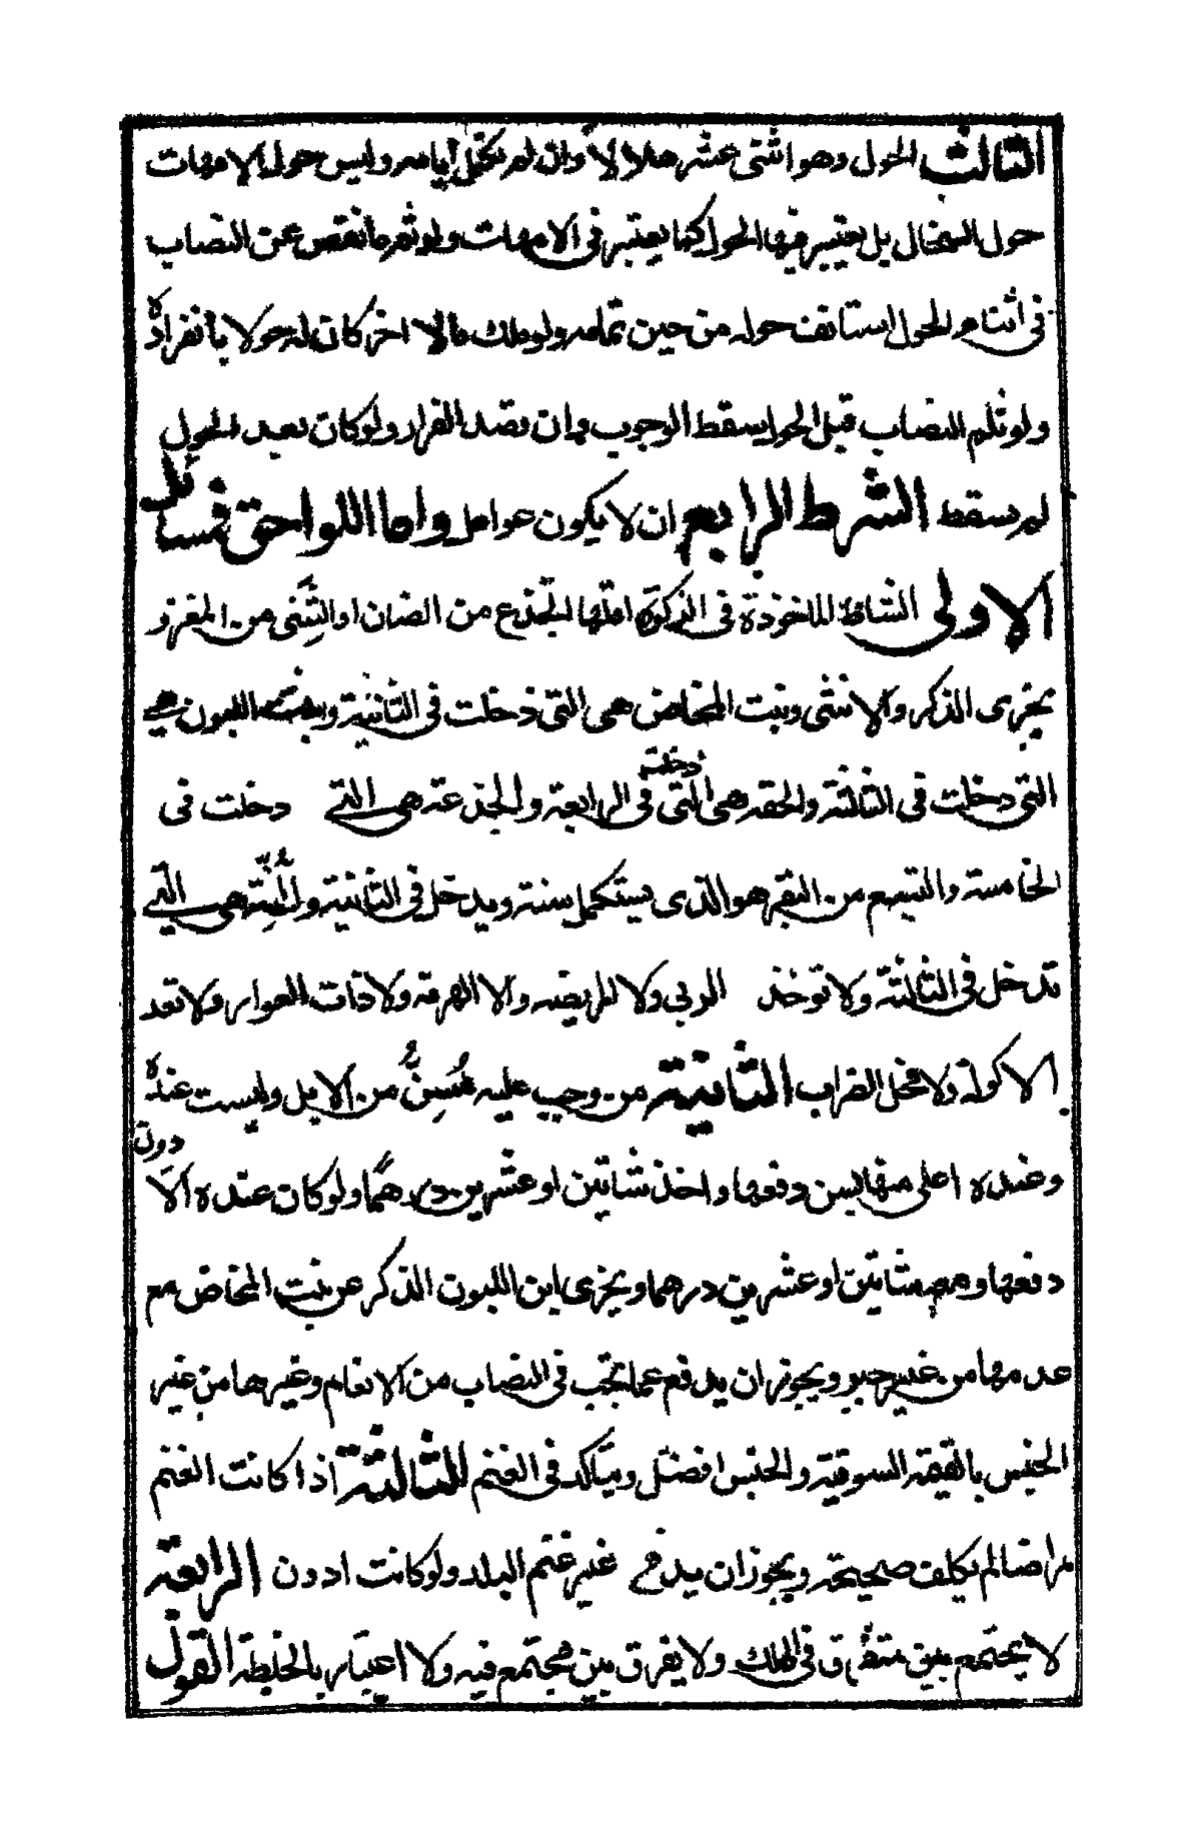 الثالث الحول وهو اثنى عشر هلالا وان لم تكمل أيامه وليس حول الامهات
حول السخال بل يعتبر فيها الحول كما يعتبر فى الامهات ولو تم ما نقص عن النصاب
فى أثناء الحول استانف حوله من حين تمامه ولو ملك مالا اخر كان له حولا بأنفراده
ولو ثلم النصاب قبل الحول سقط الوجوب وان قصد الفرار ولو كان بعد الحول
لم يسقط الشرط الرابع ان لا يكون عوامل واما اللواحق فمسائل
الاولى الشاة الماخوذة فى الزكوة اقلها الجذع من الضان او الثنى من المعز
يجزى الذكر والانثى وبنت المخاض هى التى دخلت فى الثانية وبنت اللبون هى
التى دخلت فى الثالثة والحقه هى التى دخلت فى الرابعة والجذعة هى التى دخلت فى
الخامسة والتبيع من البقر هو الذى يستكمل سنة ويدخل فى الثانية والمُسِنّة هى التى
تدخل فى الثالثة ولا توخذ الربى ولا المريضه ولا الهرمة ولا ذات العوار ولا تعد
الاكولة ولا فحل الضراب الثانية من وجب عليه سِنٌّ من الابل وليست عنده
وعنده اعلى منها بسن دفعها واخذ شاتين او عشرين درهمًا ولو كان عنده الادون
دفعها ومعها شاتين او عشرين درهما ويجزى ابن اللبون الذكر عن بنت المخاض مع
عدمها من غير جبر ويجوز ان يدفع عما يجب فى النصاب من الانعام وغيرها من غير
الجنس بالقيمة السوقية والجنس افضل ويتأكد فى الغنم الثالثة اذا كانت الغنم
مراضا لم يكلف صحيحة ويجوز ان يدفع غير غنم البلد ولو كانت ادون الرابعة
لا يجتمع بين متفرق فى الملك ولا يفرق بين مجتمع فيه ولا اعتبار بالخلطة القول